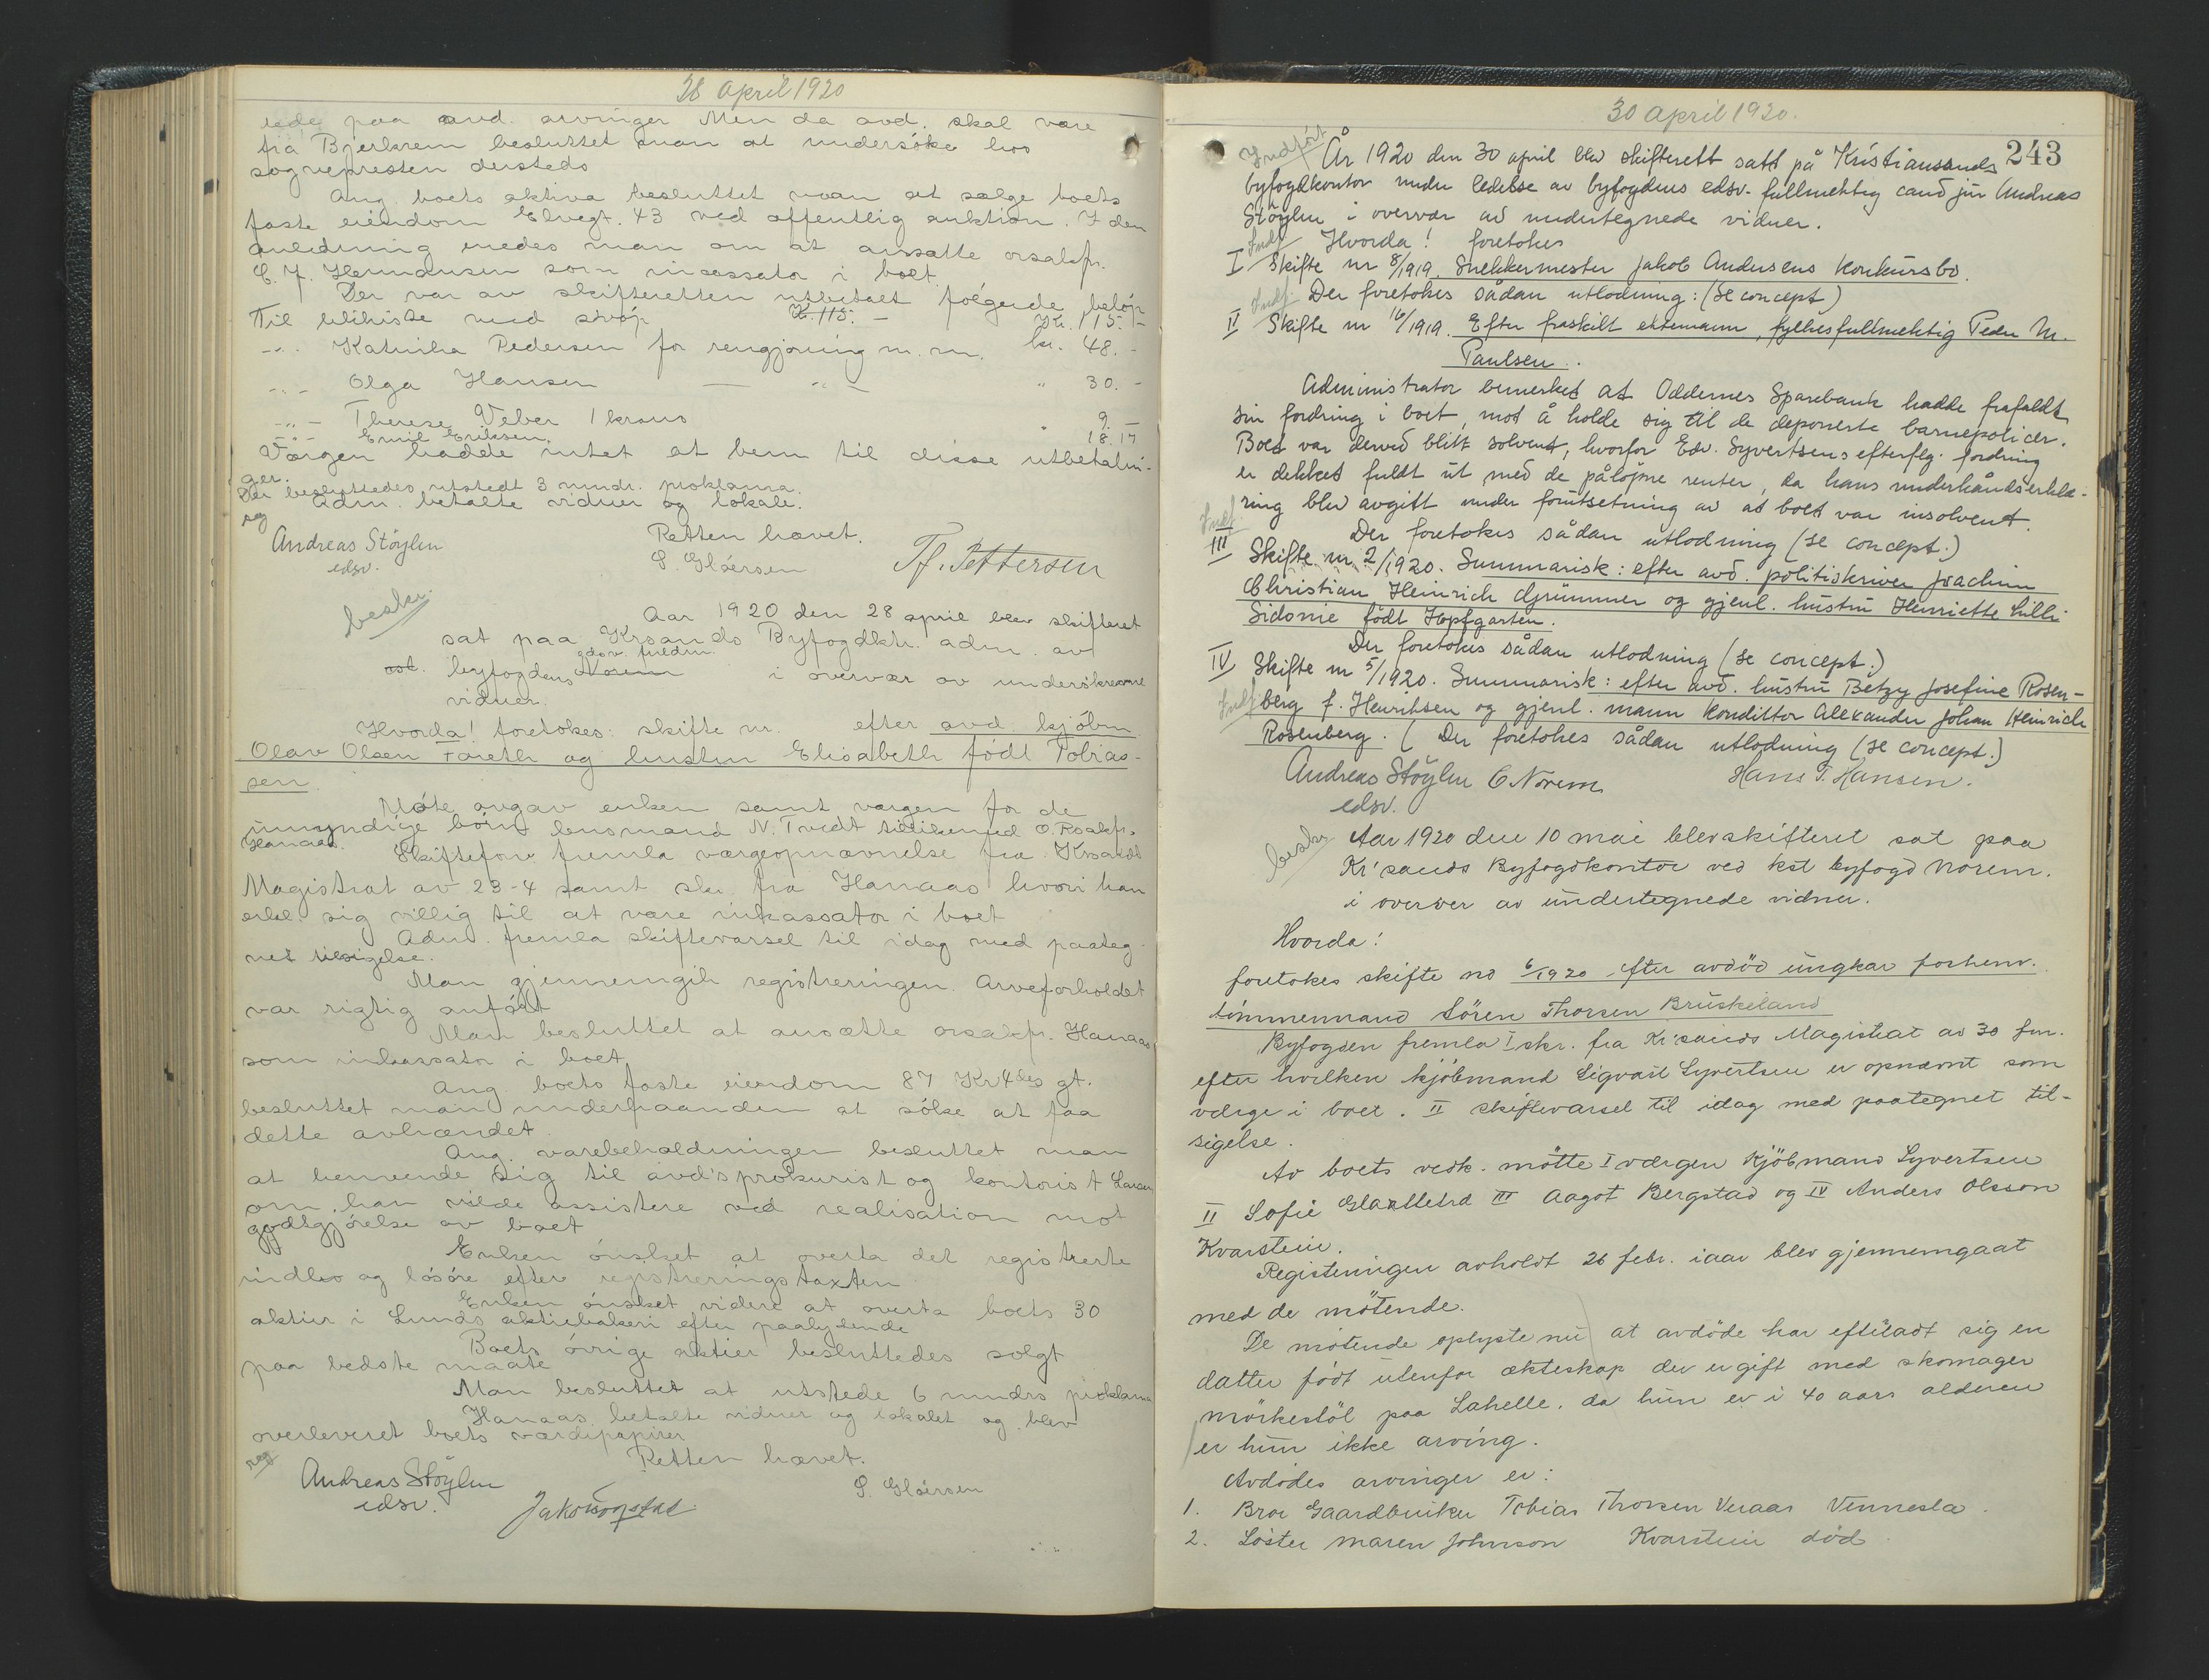 28 april 1920
lede paa avd. arvinger Men da avd. skal være
fra Bjerkrem besluttet man at undersöke hos
sognepresten dersteds
Ang boets aktiva besluttet man at sælge boets
faste eiendom Elvegt. 43 ved offentlig auktion. I den
anledning enedes man om at ansatte orsakfr.
C. F. Hermansen som incassator i boet.
Der var av skifteretten utbetalt fölgende belöp
Til likkiste med svöp K. 115. - Kr. 115. -
-"- Katinka Pedersen for rengjöring m. m. kr. 48. -
-"- Olga Hansen — " — " 30. -
-"- Therese Veber 1 krans 9. -
-"- Emil Eriksen. " 18.17
Værgen hadde intet at bem til disse utbetalin-
ger.
Der besluttedes utstedt 3 mndr. proklama.
Adm. betalte vidner og lokale.
reg
Retten hævet.
Andreas Stöylen
edsv.
S. Glöersen
Tf. Pettersen
beskr.
Aar 1920 den 28 april blev skifteret
sat paa Krsands Byfogdktr. adm. av
edsv. fuldm.
cst. byfogdens Norem i overvær av underskrevne
vidner.
Hvorda! foretokes: skifte nr. efter avd. kjöbm
Olav Olsen Fareth og hustru Elisabeth födt Tobias-
sen.
Möte avgav enken samt værgen for de
umyndige börn lensmand N. Tvedt tillikemed O.Rsakfr.
Hanaas. Skiftefor. fremla værgeopnævnelse fra Krsands
Magistrat av 23-4 samt skr. fra Hanaas hvori han
erkl. sig villig til at være inkassator i boet
Adm. fremla skiftevarsel til idag med paateg-
net tilsigelse.
Man gjennemgik registreringen. Arveforholdet
var rigtig anfört
Man besluttet at ansætte orsakfr. Hanaas
som inkassator i boet
Ang. boets faste eiendom 87 Kr 4des gt.
besluttet man underhaanden at söke at faa
dette avhændet
Ang. varebeholdningen besluttet man
at henvende sig til avd's prokurist og kontorist Larsen
om han vilde assistere ved realisation mot
godtgjörelse av boet
Enken önsket at overta det registrerte
indbo og lösöre efter registreringstaxten
Enken önsket videre at overta boets 30
aktier i Lunds aktiebakeri efter paalydende
Boets övrige aktier besluttedes solgt
paa bedste maate
Man besluttet at utstede 6 mndrs proklama
Hanaas betalte vidner og lokalet og blev
overleveret boets værdipapirer
reg
Retten hævet.
Andreas Stöylen
edsv.
S. Glöersen
30 april 1920.
243
Indført
År 1920 den 30 april blev skifterett satt på Kristiansands
byfogdkontor under ledelse av byfogdens edsv. fullmektig cand jur Andreas
Stöylen i overvær av undertegnede vidner.
Indf Hvorda! foretokes
I Skifte nr 8/1919. Snekkermester Jakob Andersens konkursbo.
Indf. Der foretokes sådan utlodning: (se concept)
II Skifte nr 16/1919. Efter fraskilt ektemann, fylkesfullmektig Peder M.
Paulsen.
Administrator bemerket at Oddernes Sparebank hadde frafaldt
sin fordring i boet, mot å holde sig til de deponerte barnepolicer.
Boet var derved blitt solvent, hvorfor Edv. Syvertsens efterflg. fordring
er dekket fuldt ut med de påløpne renter, da hans underhåndserklæ-
ring blev avgitt under forutsetning av at boet var insolvent.
Indf. Der foretokes sådan utlodning (se concept.)
III Skifte nr. 2/1920. Summarisk: efter avd. politiskriver Joachim
Christian Heinrich Grümmer og gjenl. hustru Henriette Lilli
Sidonie födt Hopfgarten.
Der foretokes sådan utlodning (se concept.)
IV Skifte nr 5/1920. Summarisk: efter avd. hustru Betzy Josefine Rosen-
Indf berg f. Henriksen og gjenl. mann konditor Alexander Johan Heinrich
Rosenberg. ( Der foretokes sådan utlodning (se concept.)
Andreas Stöylen C Norem Hans T. Hansen.
edsv.
beskr Aar 1920 den 10 mai blev skifteret sat paa
Kr'sands Byfogdkontor ved kst byfogd Norem.
i overvær av undertegnede vidner.
Hvorda!
foretokes skifte no 6/1920 efter avdöd ungkar forhenv.
tömmermand Sören Thorsen Bruskeland
Byfogden fremla I skr. fra Kr'sands Magistrat av 30 f.m.
efter hvilken kjöbmand Sigvart Syvertsen er opnævnt som
værge i boet. II skiftevarsel til idag med paategnet til-
sigelse.
Av boets vedk. mötte I værgen Kjöbmand Syvertsen
II Sofie III Aagot Bergstad og IV Anders Olsson
Kvarstein.
Registeringen avholdt 26 febr. iaar blev gjennemgaat
med de mötende.
De mötende oplyste nu at avdöde har efterladt sig en
datter födt utenfor ekteskap der er gift med skomager
Mörkestöl paa Lahelle. da hun er i 40 aars alderen
er hun ikke arving.
Avdödes arvinger er:
1. Bror Gaardbruker Tobias Thorsen Veraas Vennesla.
2. Söster Maren Johnson Kvarstein död